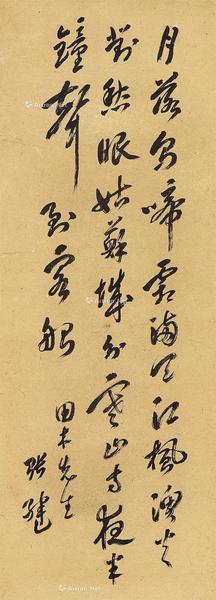 月落烏啼霜滿天江楓漁火
對愁眠姑蘇城外寒山寺夜半
鐘聲到客船
田木先生
張健